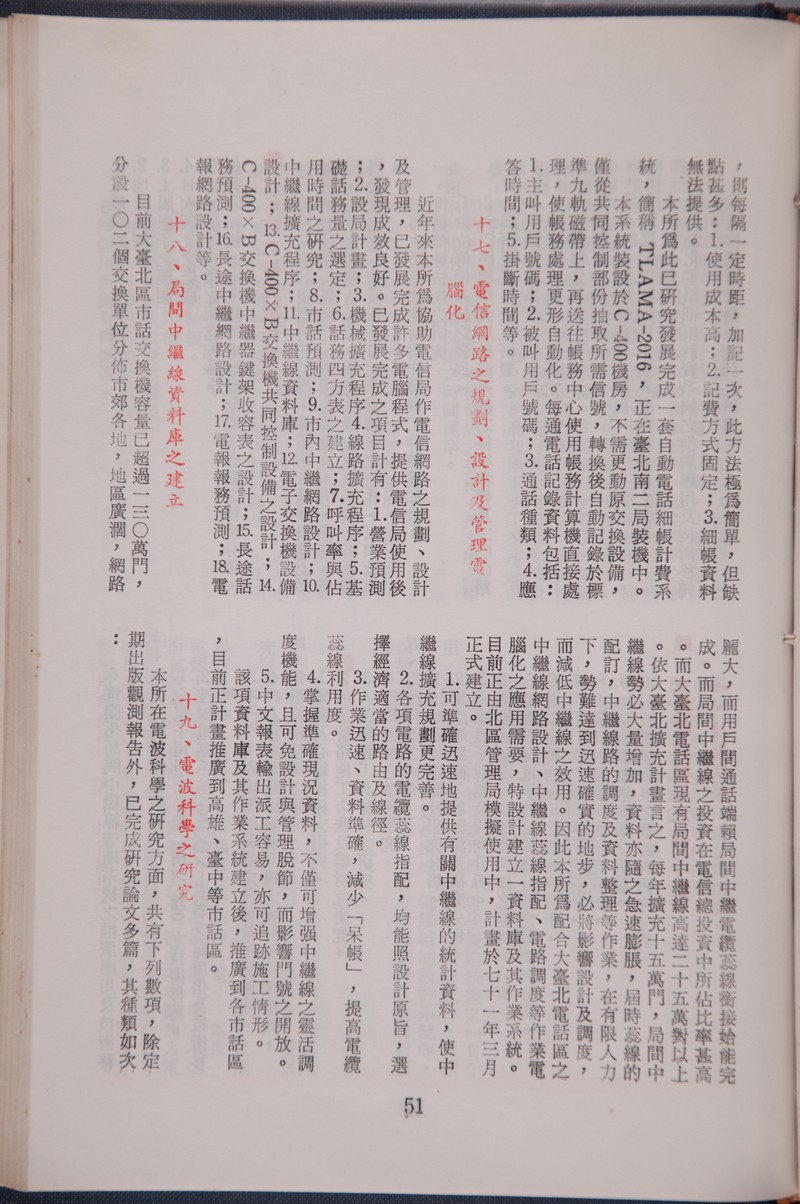 ，則每隔一定時距，加記一次，此方法極爲簡單，但缺
點甚多：1.使用成本高；2.記費方式固定；3.細帳資料
無法提供。
本所爲此已研究發展完成一套自動電話細帳計費系
統，簡稱 TLAMA-2016，正在臺北南二局裝機中。
本系統裝設於C-400機房，不需更動原交換設備，
僅從共同控制部份抽取所需信號，轉換後自動記錄於標
準九軌磁帶上，再送往帳務中心使用帳務計算機直接處
理，使帳務處理更形自動化。每通電話記錄資料包括：
1.主叫用戶號碼；2.被叫用戶號碼；3.通話種類；4.應
答時間；5.掛斷時間等。
十七、電信網路之規劃、設計及管理電
腦化
近年來本所爲協助電信局作電信網路之規劃、設計
及管理，已發展完成許多電腦程式，提供電信局使用後
，發現成效良好。已發展完成之項目計有：1.營業預測
；2.設局計畫；3.機械擴充程序4.線路擴充程序；5.基
礎話務量之選定；6.話務四方表之建立；7.呼叫率與佔
用時間之研究；8.市話預測；9.市內中繼網路設計；10.
中繼線擴充程序；11.中繼線資料庫；12.電子交換機設備
設計；13.C-400×B交換機共同控制設備之設計；14.
C-400×B交換機中繼器鍵架收容表之設計；15.長途話
務預測；16.長途中繼網路設計；17.電報報務預測；18.電
報網路設計等。
十八、局間中繼線資料庫之建立
目前大臺北區市話交換機容量已超過一三〇萬門，
分設一〇二個交換單位分佈市郊各地，地區廣濶，網路
龐大，而用戶間通話端賴局間中繼電纜蕊線銜接始能完
成。而局間中繼線之投資在電信總投資中所佔比率甚高
。而大臺北電話區現有局間中繼線高達二十五萬對以上
。依大臺北擴充計畫言之，每年擴充十五萬門，局間中
繼線勢必大量增加，資料亦隨之急速膨脹，屆時蕊線的
配訂，中繼線路的調度及資料整理等作業，在有限人力
下，勢難達到迅速確實的地步，必將影響設計及調度，
而減低中繼線之效用。因此本所爲配合大臺北電話區之
中繼線網路設計、中繼線蕊線指配、電路調度等作業電
腦化之應用需要，特設計建立一資料庫及其作業系統。
目前正由北區管理局模擬使用中，計畫於七十一年三月
正式建立。
1.可準確迅速地提供有關中繼線的統計資料，使中
繼線擴充規劃更完善。
2.各項電路的電纜蕊線指配，均能照設計原旨，選
擇經濟適當的路由及線徑。
3.作業迅速、資料準確，減少「呆帳」，提高電纜
蕊線利用度。
4.掌握準確現況資料，不僅可增强中繼線之靈活調
度機能，且可免設計與管理脫節，而影響門號之開放。
5.中文報表輸出派工容易，亦可追跡施工情形。
該項資料庫及其作業系統建立後，推廣到各市話區
，目前正計畫推廣到高雄、臺中等市話區。
十九、電波科學之研究
本所在電波科學之研究方面，共有下列數項，除定
期出版觀測報告外，已完成研究論文多篇，其種類如次
：
51